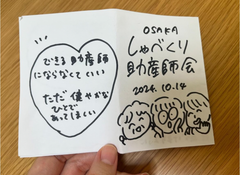 できる助産師
にならなくていい
ただ健やかな
ひとで
あってほしい
OSAKA
しゃべくり
助産師会
2024.10.14